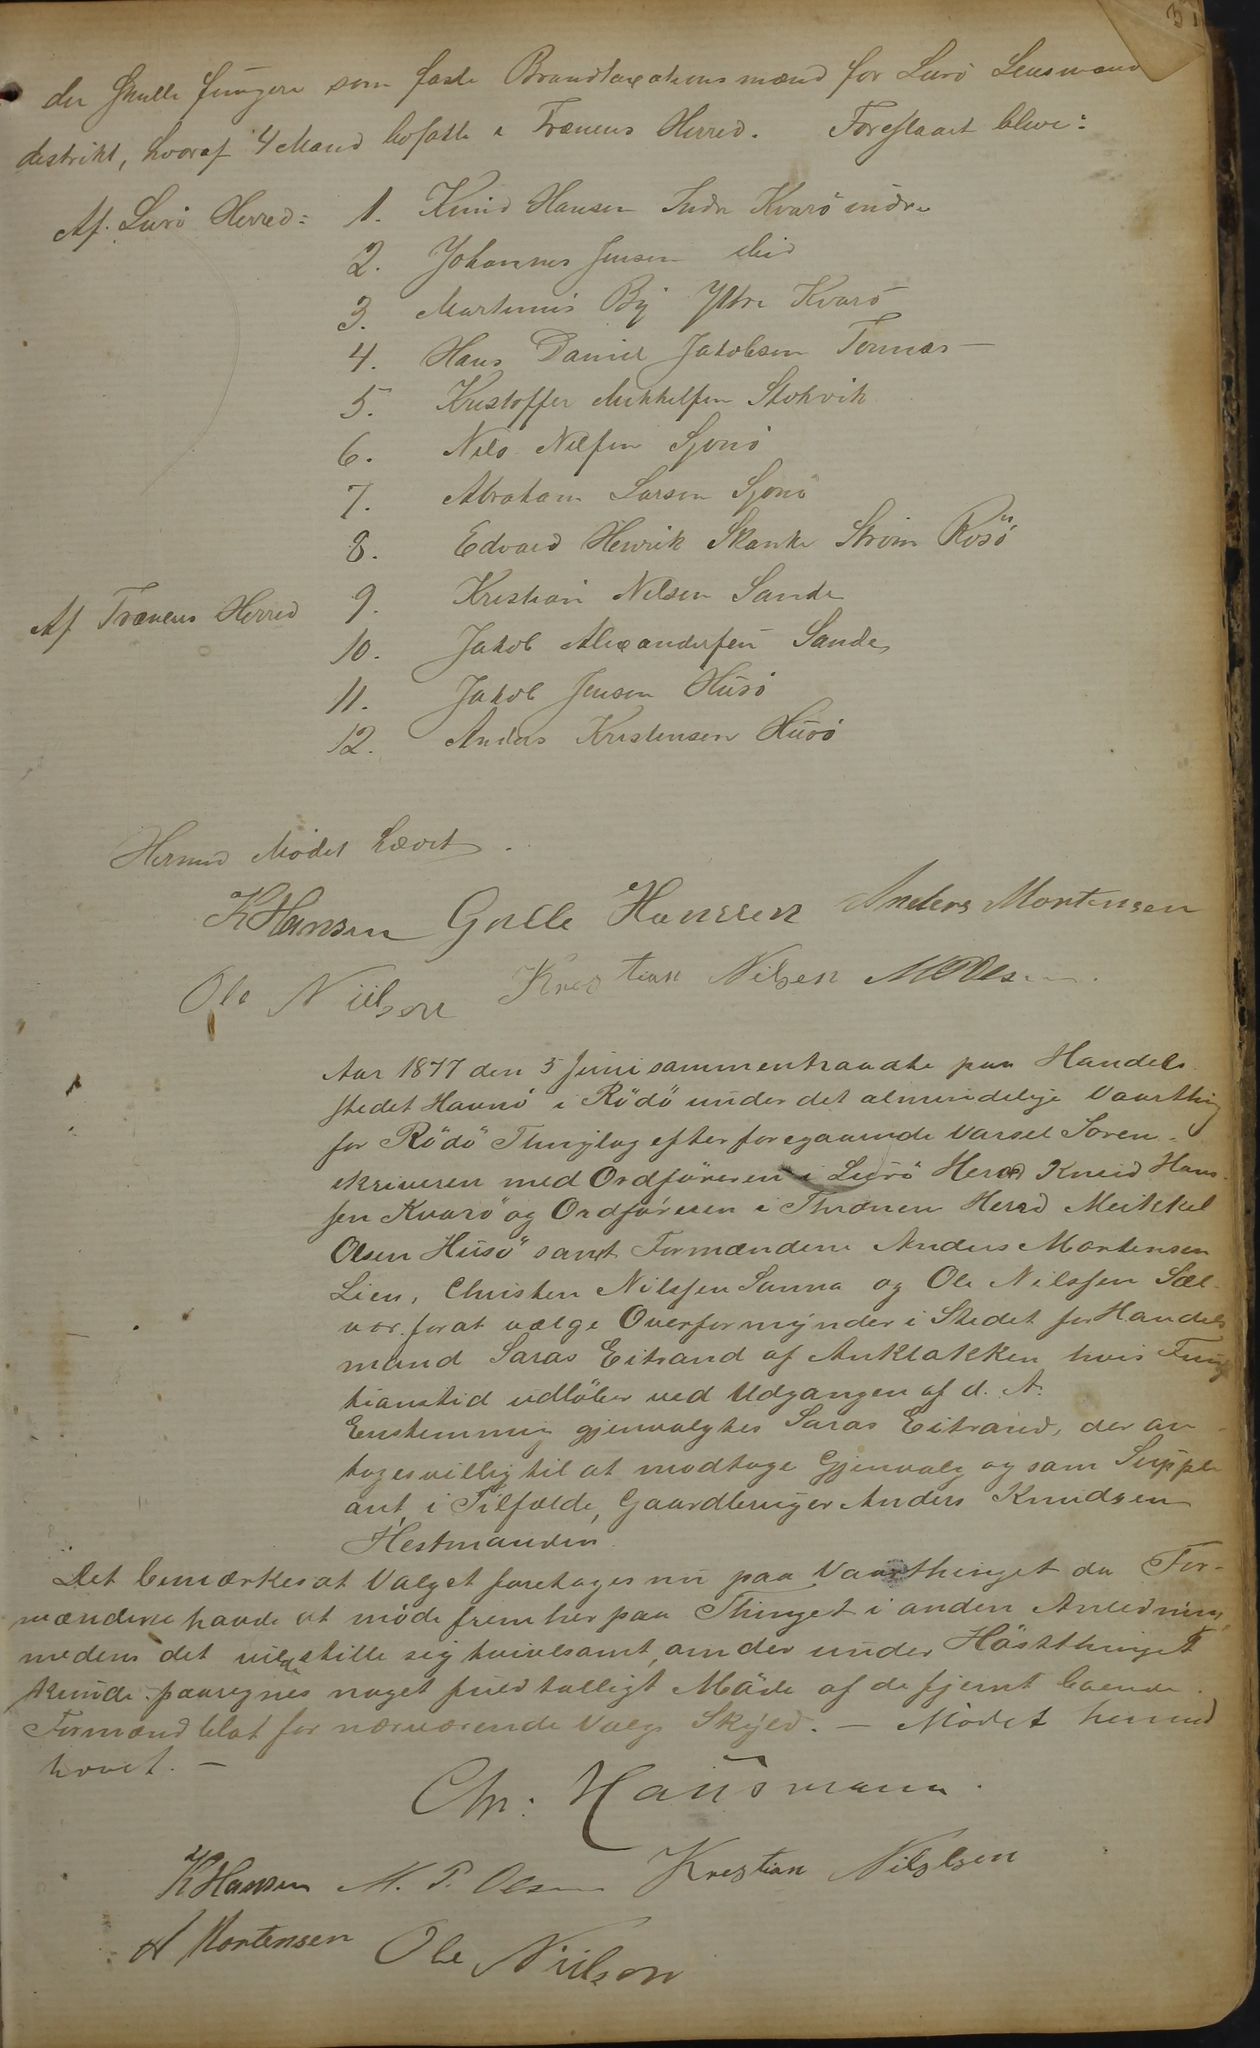 der skulle fungere som faste Brandtaxationsmænd for Lurö Lensmands
destrikt, hvoraf 4 Mand bosatte i Trænens Herred. Foreslaaet bleve:
Af Lurö Herred: 1. Knud Hansen Indre Kvarö indre
2. Johannes Jensen ibid
3. Martinus By Yttre Kvarö
4. Hans Daniel Jakobsen Tonnes
5. Kristoffer Mikkelsen Stokvik
6. Nils Nilsen Sjonö
7. Abraham Larsen Sjonö
8. Edvard Henrik Skanke Ström Rösö
Af Trænens Herred 9. Kristian Nelsen Sande
10. Jakob Alexandersen Sande
11. Jakob Jensen Husö
12. Anders Kristensen Husö
Hermed Mödet hævet.
K Hansen Gulle Hanssen Anders Mortensen
Ole Niilson Krestian Nilsen M P Olsen
Aar 1877 den 5 Juni sammentraadte paa Handels
stedet Havnö i Rödö under det almindelige Vaarthing
for Rödö Thinglag efter foregaaende Varsel Soren-
skriveren med Ordföreren i Lurö Herred Knud Han-
sen Kvarö og Ordföreren i Thrænen Herred Meikkel
Olsen Husö samt Formændene Anders Mortensen
Lien, Christen Nilssen Sanna og Ole Nilssen Sæl-
vær for at vælge Overformynder i Stedet for Handels
mand Saras Eitrand af Anklakken hvis Fung
tionstid udlöber ved Udgangen af d. A.
Enstemmig gjenvalgtes Saras Eitrand, der an-
toges villig til at modtage Gjenvalg og som Supple
ant, i Tilfælde, Gaardbruger Anders Knudsen
Hestmanden.
Det bemærkes at Valget foretages nu paa Vaarthinget da For-
mændene havde at möde frem her paa Thinget i anden Anledning,
medens det vilde stille sig tvivlsomt, om der under Höstthinget
kunde paaregnes noget fuldtalligt Möde af de fjernt boende
Formænd blot for nærværende Valgs Skyld. — Mödet hermed
hævet. —
Chr. Hausmann.
K Hansen M. P. Olsen Krestian Nilsen
A Mortensen Ole Niilson